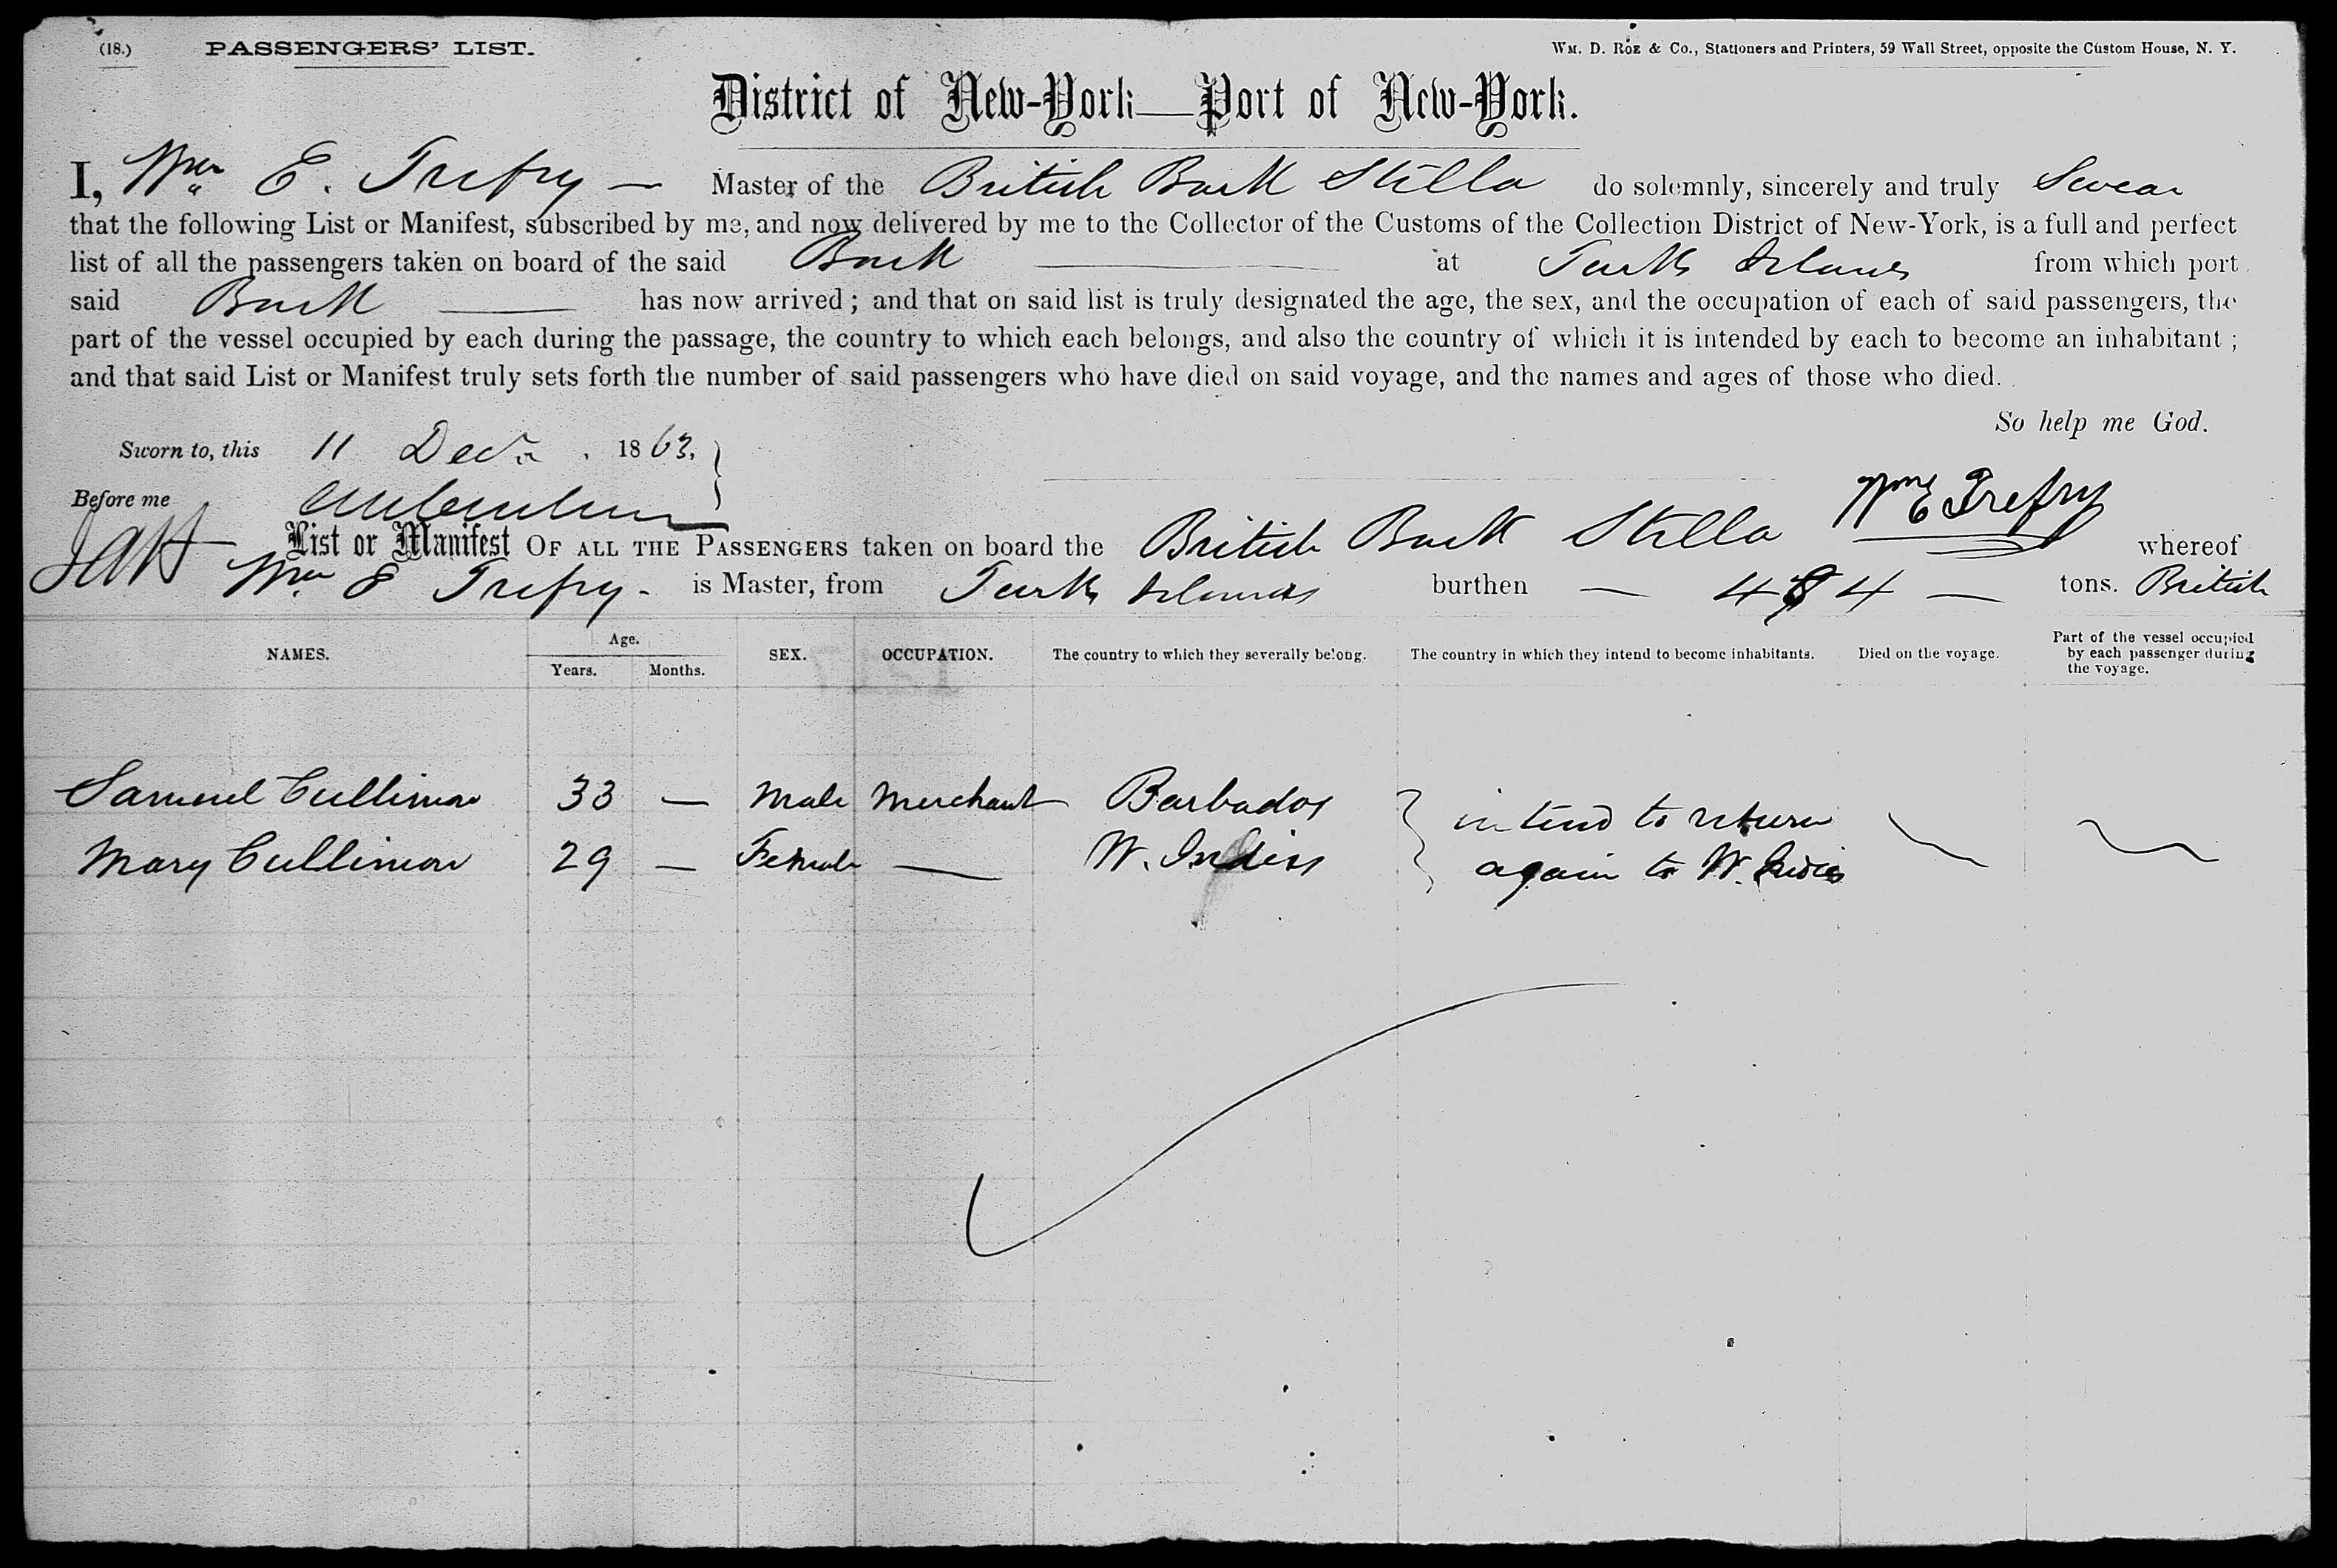 (18.) PASSENGERS' LIST. WM. D. ROE & CO., Stationers and Printers, 59 Wall Street, opposite the Custom House, N. Y.
District of New-York—Port of New-York.
I, Wm E. Trefry — Master of the British Bark Stella do solemnly, sincerely and truly Swear
that the following List or Manifest, subscribed by me, and now delivered by me to the Collector of the Customs of the Collection District of New-York, is a full and perfect
list of all the passengers taken on board of the said Bark — at Turks Islands from which port
said Bark — has now arrived; and that on said list is truly designated the age, the sex, and the occupation of each of said passengers, the
part of the vessel occupied by each during the passage, the country to which each belongs, and also the country of which it is intended by each to become an inhabitant;
and that said List or Manifest truly sets forth the number of said passengers who have died on said voyage, and the names and ages of those who died.
So help me God.
Sworn to, this 11 Decr. 1863.
Before me
Wm E Trefry
List or Manifest OF ALL THE PASSENGERS taken on board the British Bark Stella whereof
Wm. E Trefry. is Master, from Turks Islands burthen — 484 — tons. British
NAMES. Age. Years. Months. SEX. OCCUPATION. The country to which they severally belong. The country in which they intend to become inhabitants. Died on the voyage. Part of the vessel occupied by each passenger during the voyage.
Samuel Cullimore 33 — Male Merchant Barbados intend to return
Mary Cullimore 29 — Female — W. Indies again to W. Indies